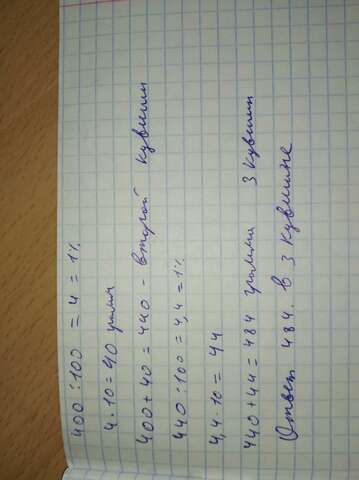 400 : 100 = 4 = 1%
4 · 10 = 40 грамм
400 + 40 = 440 - второй кувшин
440 : 100 = 4,4 = 1%
4,4 · 10 = 44
440 + 44 = 484 грамма 3 кувшин
Ответ 484. в 3 кувшине